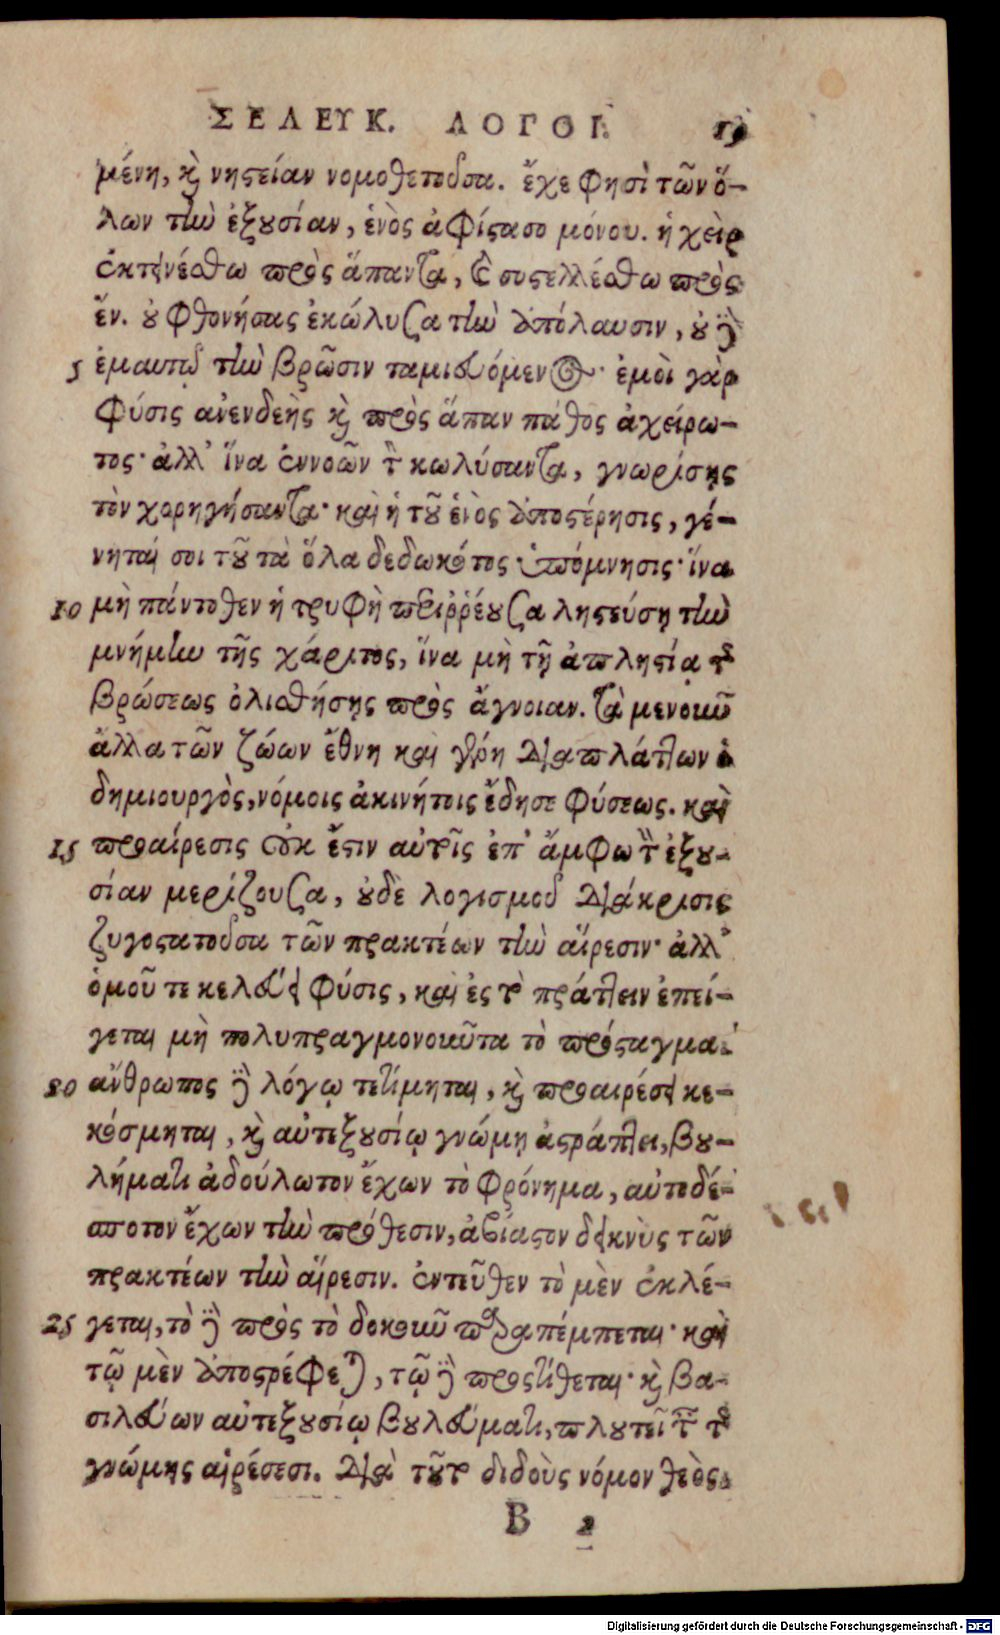 ΣΕΛΕΥΚ. ΛΟΓΟΙ. 19
μένη, καὶ νηστείαν νομοθετοῦσα. ἔχε φησὶ τῶν ὅ-
λων τὴν ἐξουσίαν, ἑνὸς ἀφίστασο μόνου. ἡ χεὶρ
ἐκτεινέσθω πρὸς ἅπαντα, καὶ συστελλέσθω πρὸς
ἕν. οὐ φθονήσας ἐκώλυσα τὴν ἀπόλαυσιν, οὐδὲ
5 ἐμαυτῷ τὴν βρῶσιν ταμιευόμενος· ἐμοὶ γὰρ
φύσις ἀνενδεὴς καὶ πρὸς ἅπαν πάθος ἀχείρω-
τος· ἀλλ' ἵνα ἐννοῶν τὸν κωλύσαντα, γνωρίσῃς
τὸν χορηγήσαντα· καὶ ἡ τοῦ ἑνὸς ἀποστέρησις, γέ-
νηταί σοι τοῦ τὰ ὅλα δεδωκότος ὑπόμνησις· ἵνα
10 μὴ πάντοθεν ἡ τρυφὴ περιῤῥέουσα λῃστεύσῃ τὴν
μνήμην τῆς χάριτος, ἵνα μὴ τῇ ἀπληστίᾳ τῆς
βρώσεως ὀλισθήσῃς πρὸς ἄγνοιαν. τὰ μὲν οὖν
ἄλλα τῶν ζώων ἔθνη καὶ γένη διαπλάττων ὁ
δημιουργὸς, νόμοις ἀκινήτοις ἔδησε φύσεως. καὶ
15 προαίρεσις οὐκ ἔστιν αὐτοῖς ἐπ' ἄμφω τὴν ἐξου-
σίαν μερίζουσα, οὐδὲ λογισμοῦ διάκρισις
ζυγοστατοῦσα τῶν πρακτέων τὴν αἵρεσιν· ἀλλ'
ὁμοῦ τε κελεύει φύσις, καὶ ἐς τὸ πράττειν ἐπεί-
γεται μὴ πολυπραγμονοῦντα τὸ πρόσταγμα.
20 ἄνθρωπος δὲ λόγῳ τετίμηται, καὶ προαιρέσει κε-
κόσμηται, καὶ αὐτεξουσίῳ γνώμῃ ἀστράπτει, βου-
λήματι ἀδούλωτον ἔχων τὸ φρόνημα, αὐτοδέ-
σποτον ἔχων τὴν πρόθεσιν, ἀβίαστον δεικνὺς τῶν
πρακτέων τὴν αἵρεσιν. ἐντεῦθεν τὸ μὲν ἐκλέ-
25 γεται, τὸ δὲ πρὸς τὸ δοκοῦν παραπέμπεται· καὶ
τῷ μὲν ἀποστρέφεται, τῷ δὲ προστίθεται· καὶ βα-
σιλεύων αὐτεξουσίῳ βουλεύματι, πλουτεῖ τὴν τῆς
γνώμης αἱρέσεσι. διὰ τοῦτο διδοὺς νόμον θεὸς
B 2
Digitalisierung gefördert durch die Deutsche Forschungsgemeinschaft - DFG